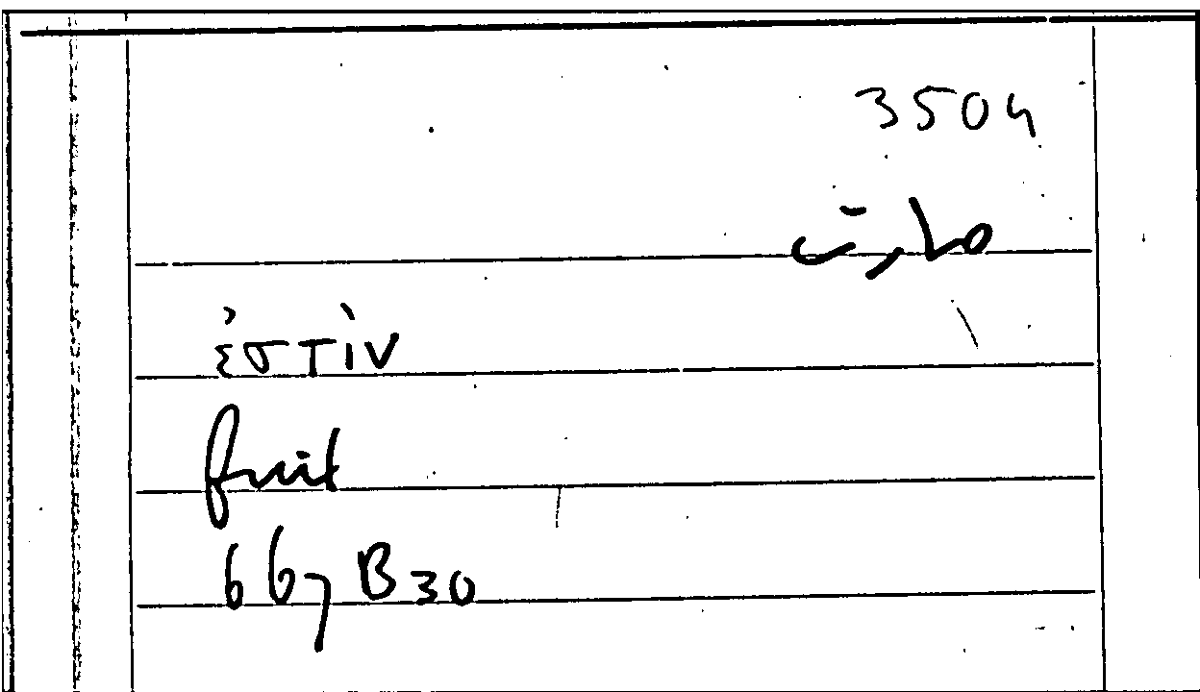 3504
صارت
ἐστὶν
fuit
667 B 30